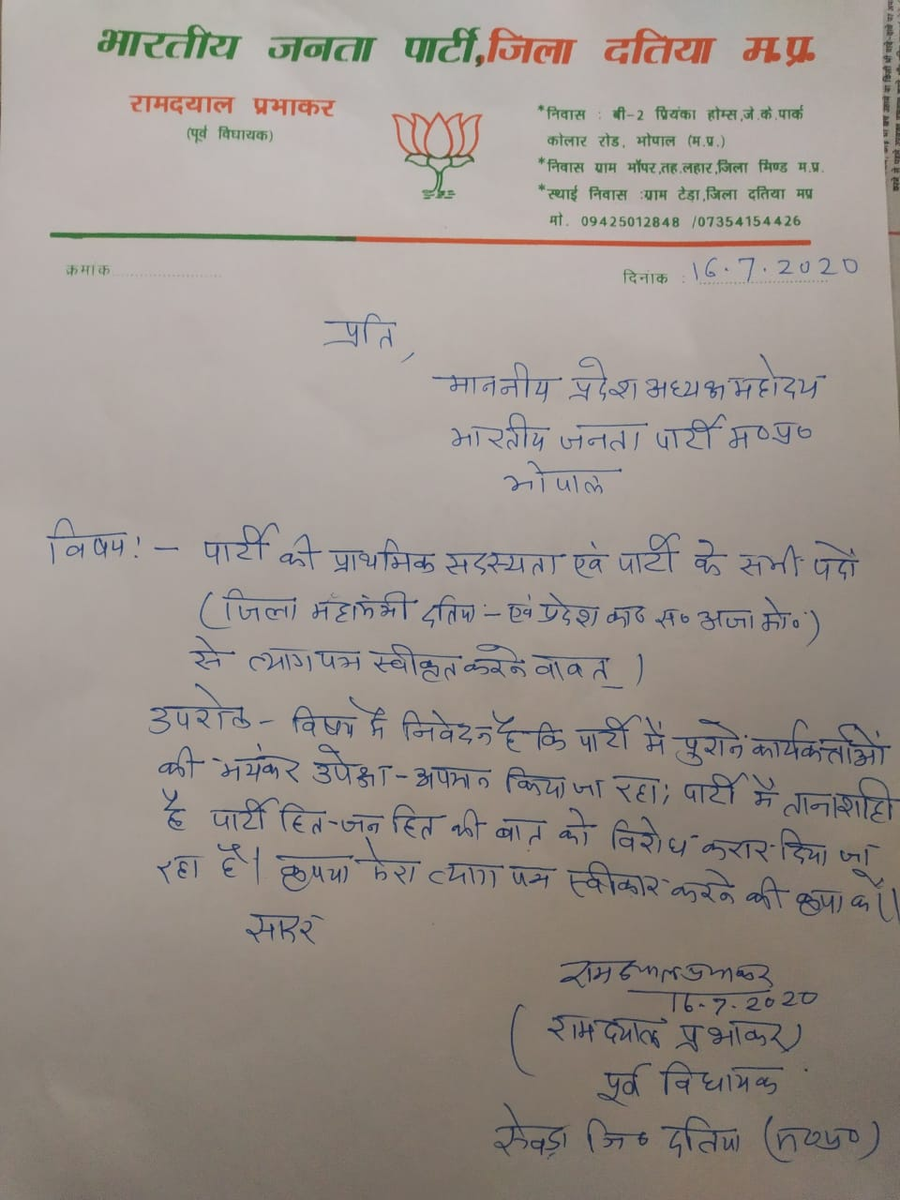 भारतीय जनता पार्टी,जिला दतिया म.प्र.
रामदयाल प्रभाकर
(पूर्व विधायक)
*निवास : बी-2 प्रियंका होम्स,जे.के.पार्क
कोलार रोड, भोपाल (म.प्र.)
*निवास ग्राम मॉपर,तह.लहार,जिला भिण्ड म.प्र.
*स्थाई निवास :ग्राम टेड़ा,जिला दतिया मप्र
मो. 09425012848 /07354154426
क्रमांक
दिनांक : 16.7.2020
प्रति,
माननीय प्रदेश अध्यक्ष महोदय
भारतीय जनता पार्टी म०प्र०
भोपाल
विषय:- पार्टी की प्राथमिक सदस्यता एवं पार्टी के सभी पदों
(जिला महामंत्री दतिया - एवं प्रदेश का० स० अजा मो०)
से त्यागपत्र स्वीकृत करने वावत्।
उपरोक्त - विषय में निवेदन है कि पार्टी में पुराने कार्यकर्त्ताओं
की भयंकर उपेक्षा - अपमान किया जा रहा; पार्टी में तानाशाही
है पार्टी हित-जन हित की बात को विरोध करार दिया जा
रहा है। कृपया मेरा त्याग पत्र स्वीकार करने की कृपा करें।
सादर
रामदयाल प्रभाकर
16.7.2020
(रामदयाल प्रभाकर)
पूर्व विधायक
सेवड़ा जि० दतिया (म०प्र०)